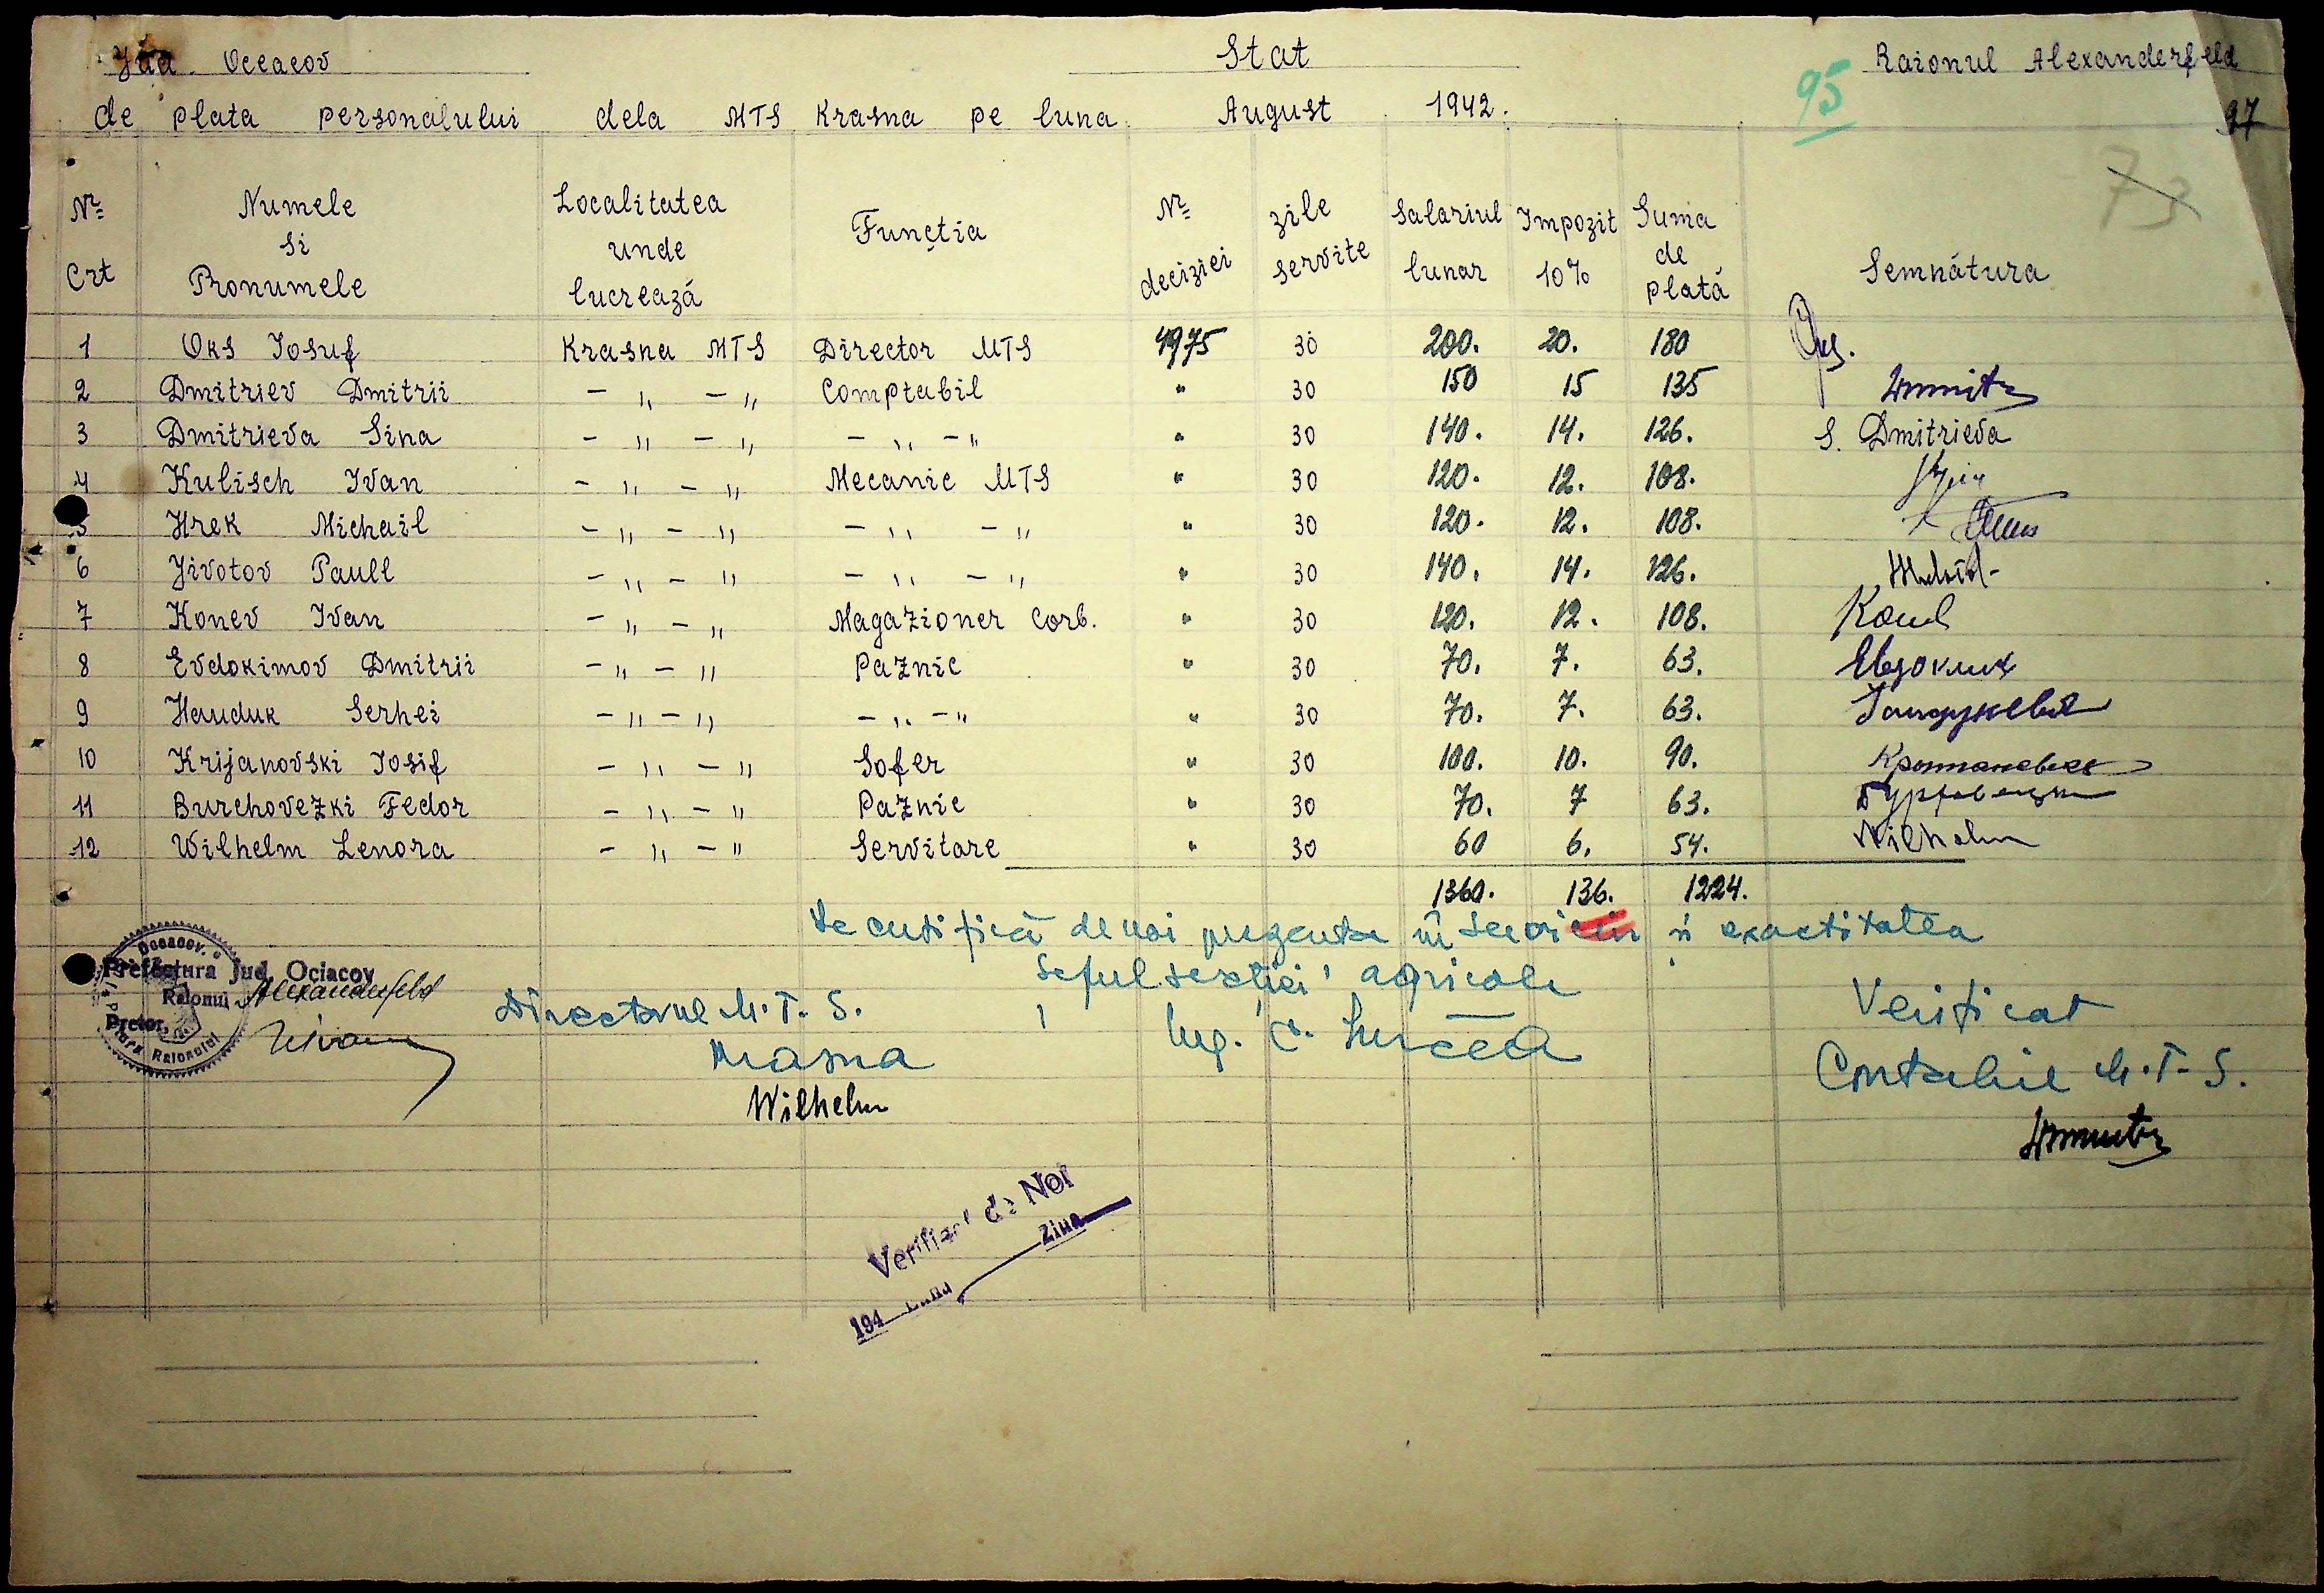 Jud. Oceacov Stat Raionul Alexanderfeld
95
de plata personalului dela MTS Krasna pe luna August 1942. 97
73
Nr Crt Numele si Pronumele Localitatea unde lucrează Funcţia Nr deciziei zile servite Salariul lunar Impozit 10% Suma de plată Semnătura
1 Oks Iosuf Krasna MTS Director MTS 4975 30 200. 20. 180 Oks.
2 Dmitriev Dmitrii - " - " Comptabil " 30 150 15 135
3 Dmitrieva Sina - " - " - " - " " 30 140. 14. 126. S. Dmitrieva
4 Kulisch Ivan - " - " Mecanic MTS " 30 120. 12. 108.
5 Hrek Michail - " - " - " - " " 30 120. 12. 108.
6 Jivotov Paull - " - " - " - " " 30 140. 14. 126.
7 Konev Ivan - " - " Magazioner Corb. " 30 120. 12. 108.
8 Evdokimov Dmitrii - " - " Paznic " 30 70. 7. 63. Евдоким
9 Hauduk Serhei - " - " - " - " " 30 70. 7. 63.
10 Krijanovski Iosif - " - " Sofer " 30 100. 10. 90.
11 Burchovezki Fedor - " - " Paznic " 30 70. 7 63.
12 Wilhelm Lenora - " - " Servitore " 30 60 6. 54. Wilhelm
1360. 136. 1224.
Se certifică de noi prezenta în serviciu si exactitatea
Seful secţiei agricole
Ing. C.
Prefectura Jud. Ociacov
Raionul Alexanderfeld
Pretor,
Directorul M.T.S.
Krasna
Wilhelm
Verificat
Contabil M.T.S.
Verificat de Noi
194 Luna Ziua